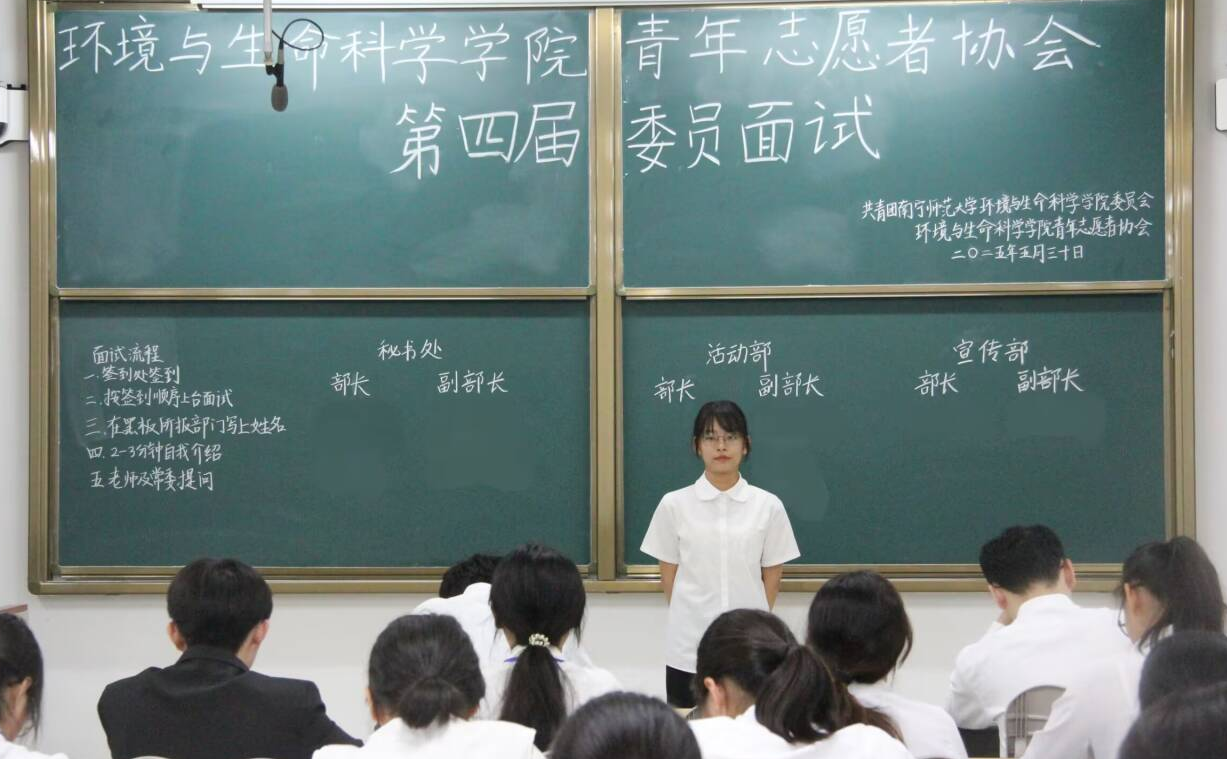 环境与生命科学学院 青年志愿者协会
第四届 委员面试
共青团南宁师范大学环境与生命科学学院委员会
环境与生命科学学院青年志愿者协会
二〇二五年五月三十日
面试流程
一.签到处签到
二.按签到顺序上台面试
三.在黑板所报部门写上姓名
四.2-3分钟自我介绍
五.老师及常委提问
秘书处
部长 副部长
活动部
部长 副部长
宣传部
部长 副部长